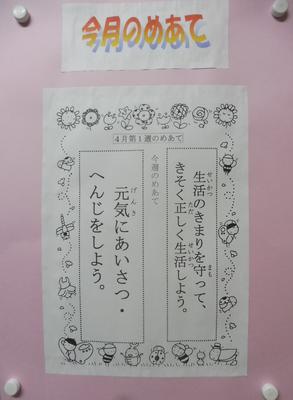 今月のめあて
4月第1週のめあて
生活のきまりを守って、
きそく正しく生活しよう。
今週のめあて
元気にあいさつ・
へんじをしよう。